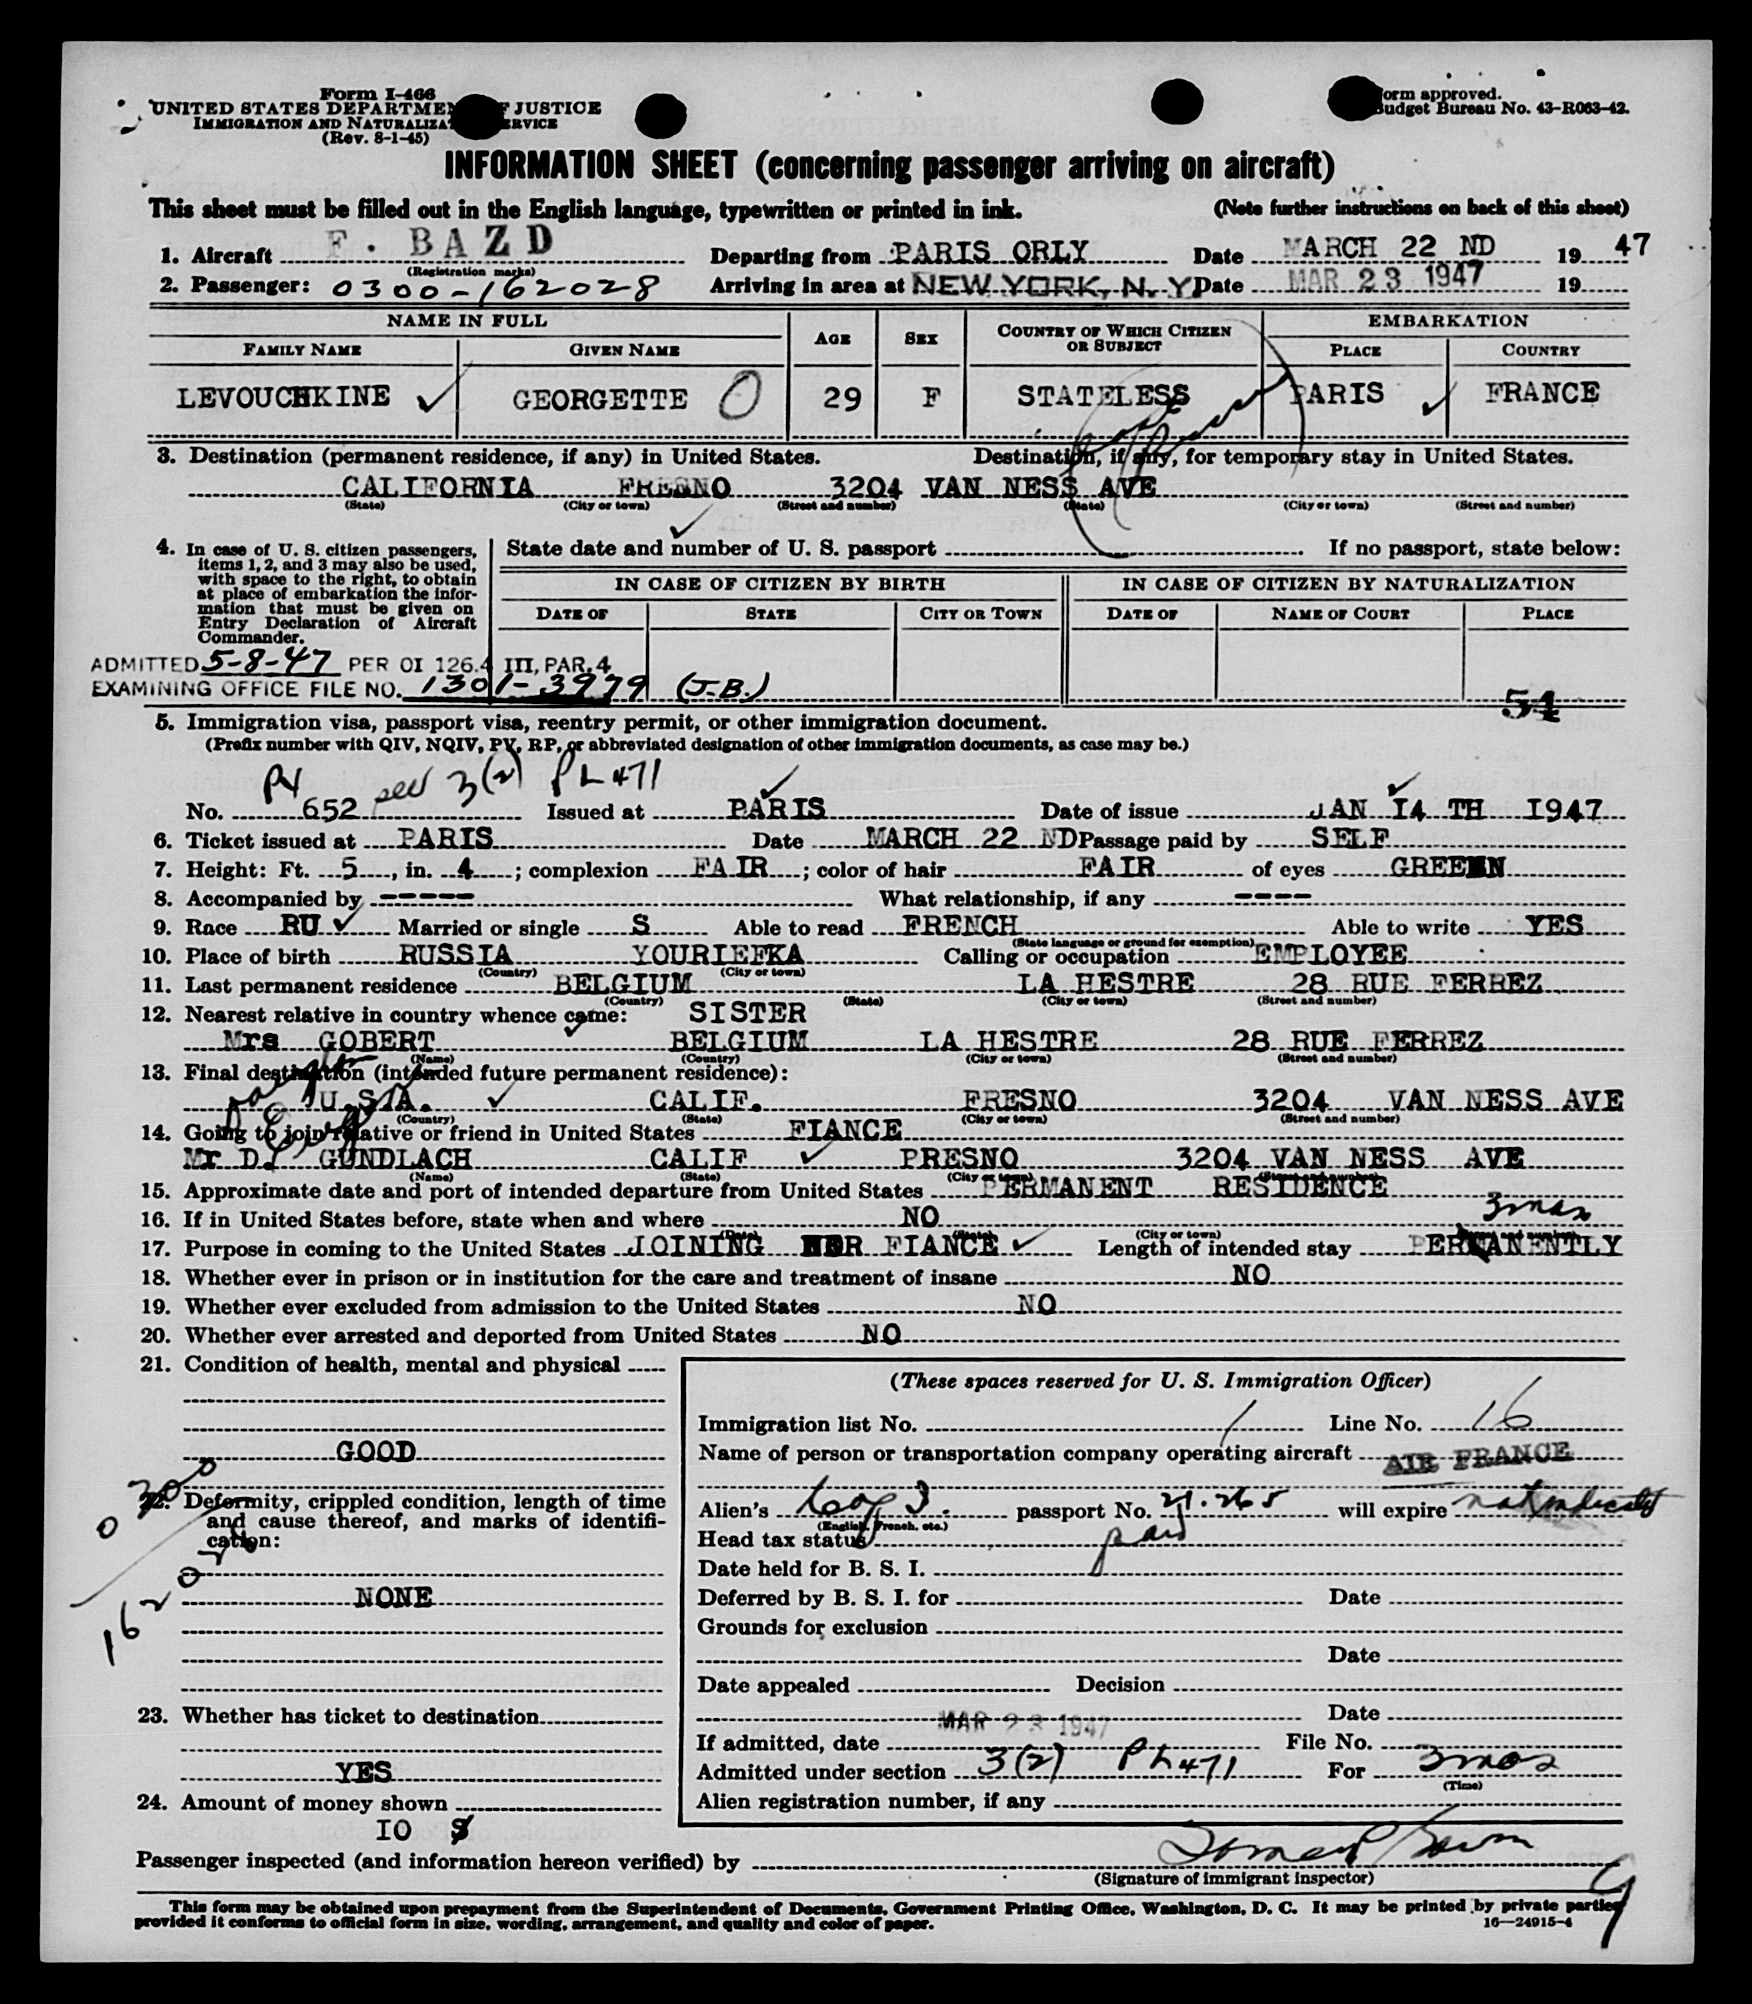 Form I-466
UNITED STATES DEPARTMENT OF JUSTICE
IMMIGRATION AND NATURALIZATION SERVICE
(Rev. 8-1-45)
Form approved.
Budget Bureau No. 43-R063-42.
INFORMATION SHEET (concerning passenger arriving on aircraft)
This sheet must be filled out in the English language, typewritten or printed in ink. (Note further instructions on back of this sheet)
1. Aircraft F. BAZD Departing from PARIS ORLY Date MARCH 22 ND 19 47
(Registration marks)
2. Passenger: 0300-162028 Arriving in area at NEW YORK, N. Y. Date MAR 23 1947 19
NAME IN FULL AGE SEX COUNTRY OF WHICH CITIZEN OR SUBJECT EMBARKATION
FAMILY NAME GIVEN NAME PLACE COUNTRY
LEVOUCHKINE GEORGETTE 29 F STATELESS PARIS FRANCE
3. Destination (permanent residence, if any) in United States. Destination, if any, for temporary stay in United States.
CALIFORNIA FRESNO 3204 VAN NESS AVE
(State) (City or town) (Street and number) (State) (City or town) (Street and number)
4. In case of U. S. citizen passengers, items 1, 2, and 3 may also be used, with space to the right, to obtain at place of embarkation the information that must be given on Entry Declaration of Aircraft Commander.
State date and number of U. S. passport If no passport, state below:
IN CASE OF CITIZEN BY BIRTH IN CASE OF CITIZEN BY NATURALIZATION
DATE OF STATE CITY OR TOWN DATE OF NAME OF COURT PLACE
ADMITTED 5-8-47 PER OI 126.4 III, PAR. 4
EXAMINING OFFICE FILE NO. 1301-3979 (J.B.)
54
5. Immigration visa, passport visa, reentry permit, or other immigration document.
(Prefix number with QIV, NQIV, PV, RP, or abbreviated designation of other immigration documents, as case may be.)
PV sec 3(2) PL 471
No. 652 Issued at PARIS Date of issue JAN I4 TH I947
6. Ticket issued at PARIS Date MARCH 22 ND Passage paid by SELF
7. Height: Ft. 5, in. 4; complexion FAIR; color of hair FAIR of eyes GREEN
8. Accompanied by ----- What relationship, if any ----
9. Race RU Married or single S Able to read FRENCH Able to write YES
(State language or ground for exemption)
10. Place of birth RUSSIA YOURIEFKA Calling or occupation EMPLOYEE
(Country) (City or town)
11. Last permanent residence BELGIUM LA HESTRE 28 RUE FERREZ
(Country) (State) (City or town) (Street and number)
12. Nearest relative in country whence came: SISTER
Mrs GOBERT BELGIUM LA HESTRE 28 RUE FERREZ
(Name) (Country) (City or town) (Street and number)
13. Final destination (intended future permanent residence):
U.S.A. CALIF. FRESNO 3204 VAN NESS AVE
(Country) (State) (City or town) (Street and number)
14. Going to join relative or friend in United States FIANCE
Mr D. GUNDLACH CALIF FRESNO 3204 VAN NESS AVE
(Name) (State) (City or town) (Street and number)
15. Approximate date and port of intended departure from United States PERMANENT RESIDENCE
16. If in United States before, state when and where NO
(Date) (State) (City or town) (Street and number)
3 mos
17. Purpose in coming to the United States JOINING HER FIANCE Length of intended stay PERMANENTLY
18. Whether ever in prison or in institution for the care and treatment of insane NO
19. Whether ever excluded from admission to the United States NO
20. Whether ever arrested and deported from United States NO
21. Condition of health, mental and physical
GOOD
22. Deformity, crippled condition, length of time and cause thereof, and marks of identification:
NONE
0300
162028
23. Whether has ticket to destination
YES
24. Amount of money shown
IO $
(These spaces reserved for U. S. Immigration Officer)
Immigration list No. 1 Line No. 16
Name of person or transportation company operating aircraft AIR FRANCE
Alien's passport No. 21.265 will expire not indicated
(English, French, etc.)
Head tax status paid
Date held for B. S. I.
Deferred by B. S. I. for Date
Grounds for exclusion
Date
Date appealed Decision
Date
If admitted, date MAR 23 1947 File No.
Admitted under section 3(2) PL 471 For 3 mos
(Time)
Alien registration number, if any
Passenger inspected (and information hereon verified) by
(Signature of immigrant inspector)
This form may be obtained upon prepayment from the Superintendent of Documents, Government Printing Office, Washington, D. C. It may be printed by private parties
provided it conforms to official form in size, wording, arrangement, and quality and color of paper. 16—24915-4
9